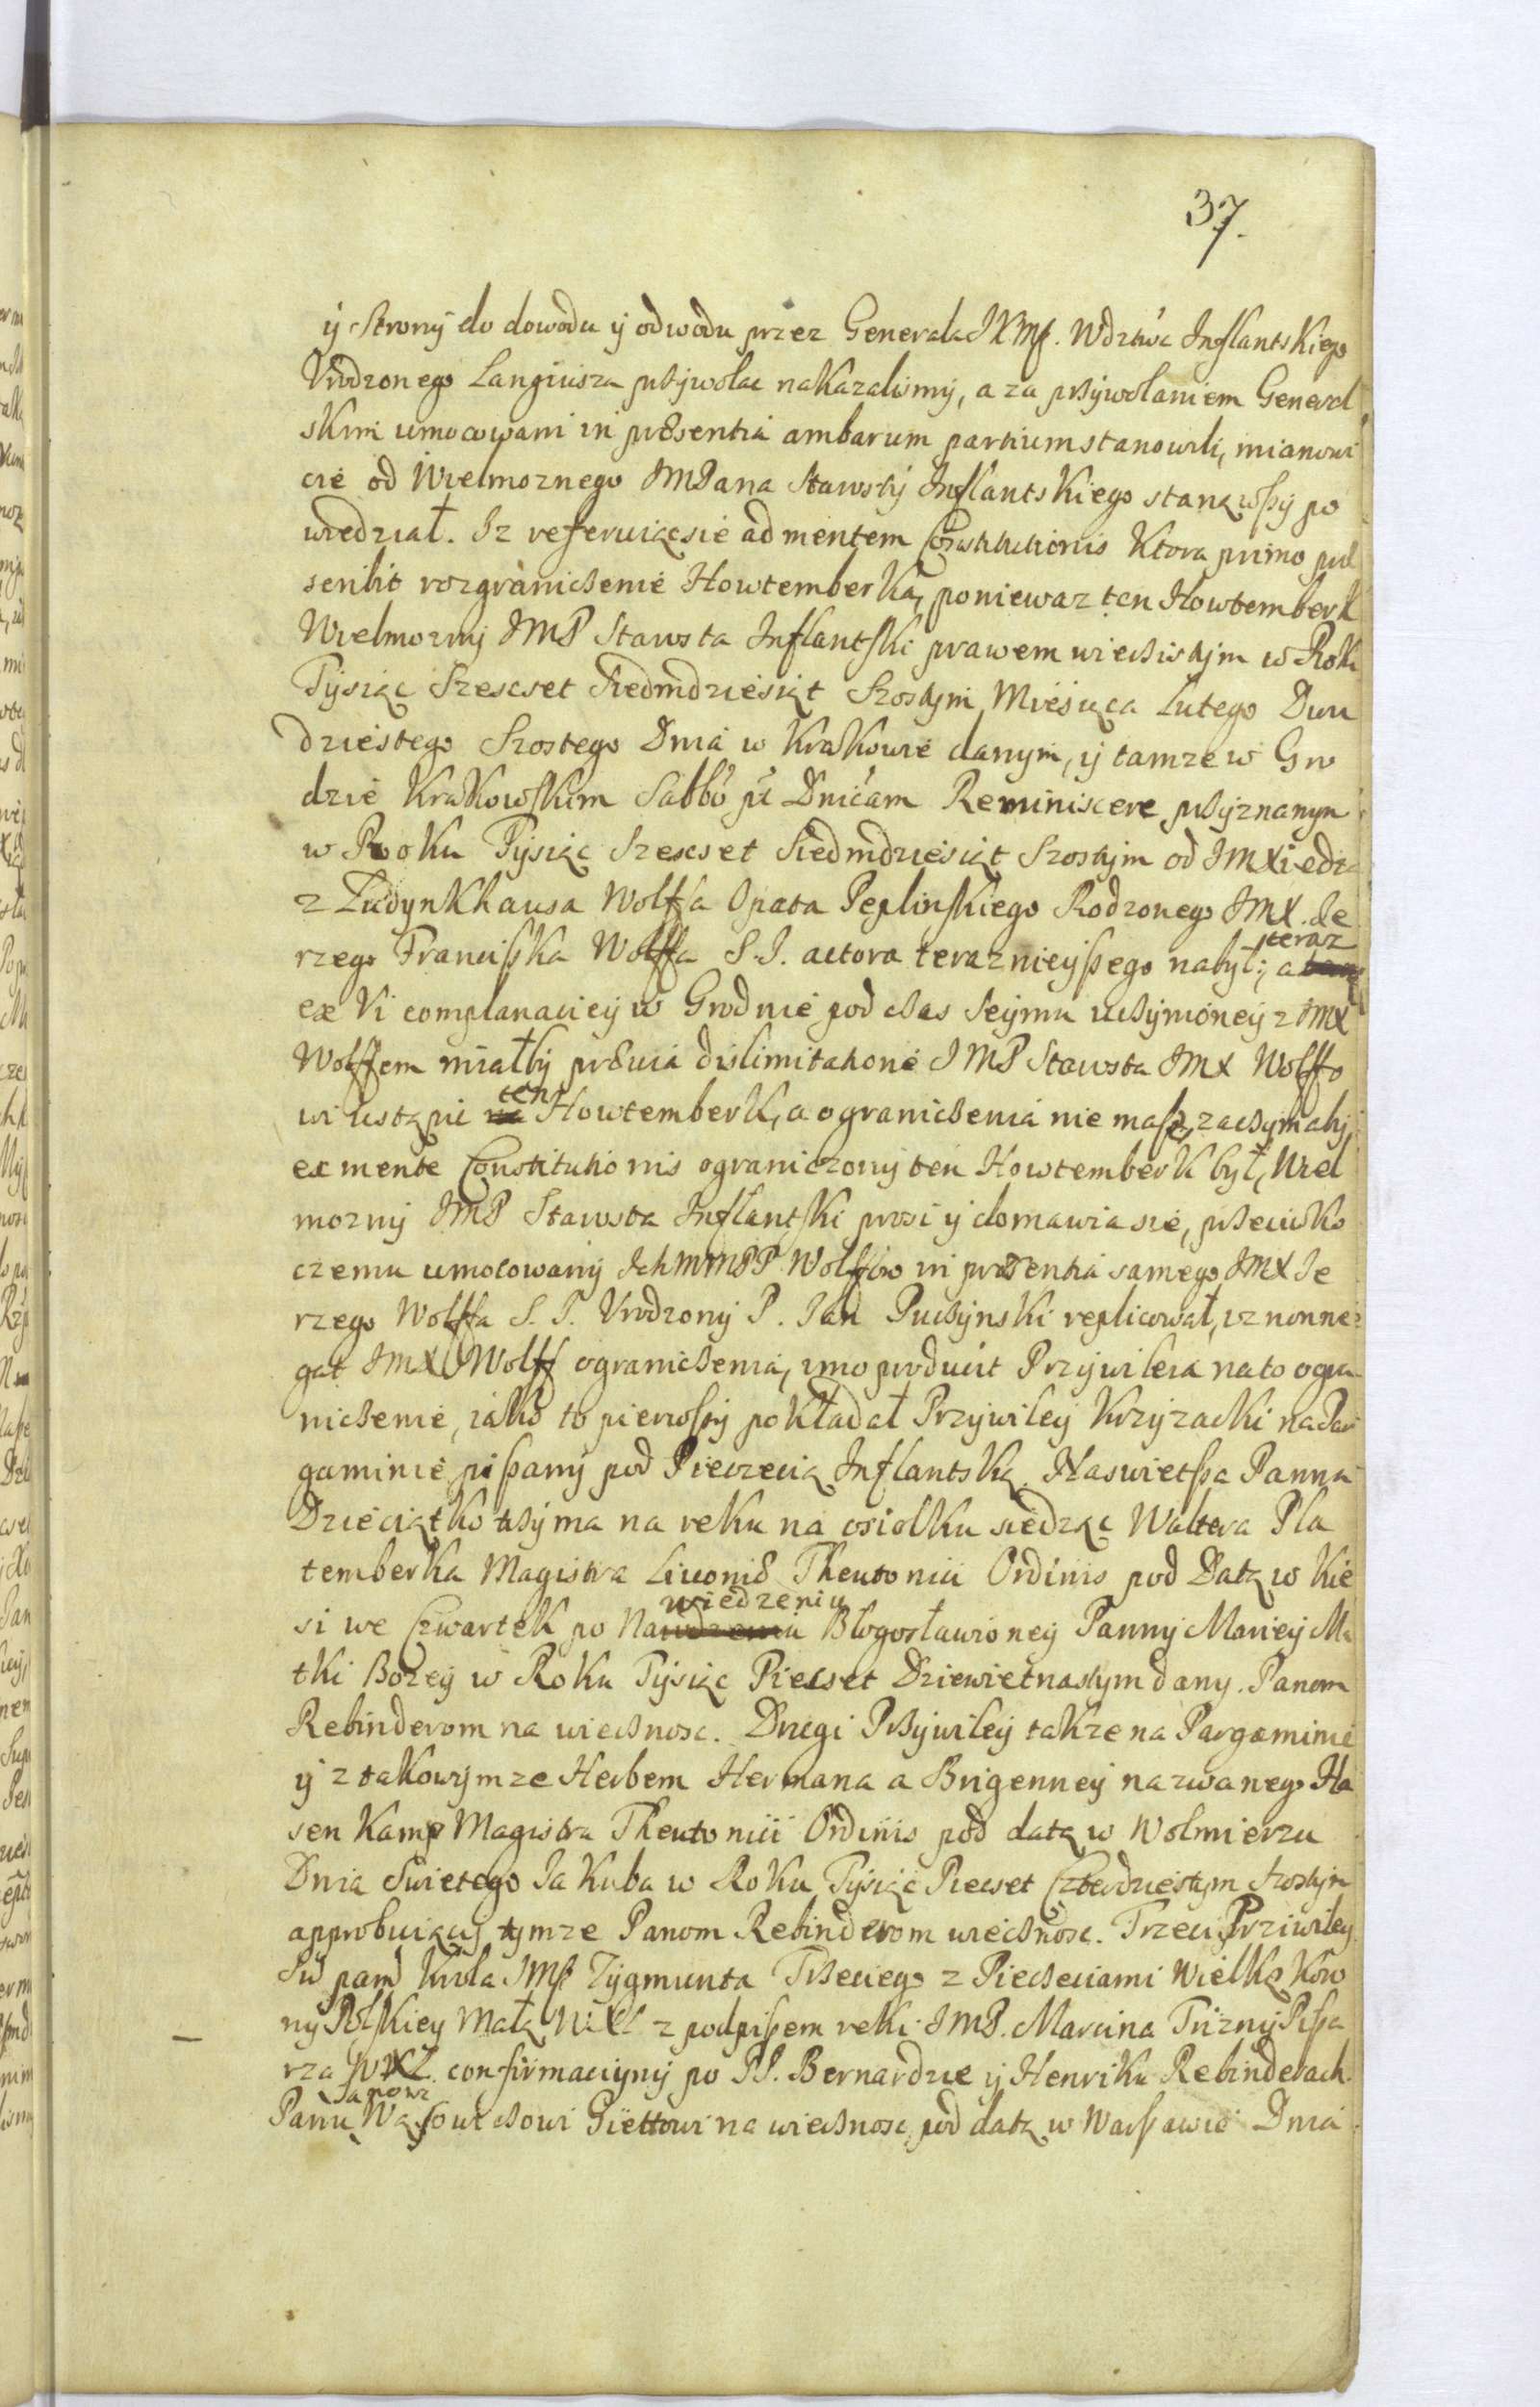 37.
ÿ Stronÿ do dowodu ÿ odwodu przez Generala JKMſ. Wdztwa Inflantskiego
Vrodzonego Langiusza psÿwolac nakazalismÿ, a za psÿwolaniem General
skim umocowani in præsentia ambarum partium stanowili, mianowi
cie od Wielmoznego JMPana Starostÿ Inflantskiego stanąwſzÿ po
wiedział. Iz referuiącsie ad mentem Constitutionis Ktora primo præ
scribit rozgraniczenie Howtemberka, poniewaz ten Howtemberk
Wielmoznÿ JMP Starosta Inflantſki prawem wiecżistÿm w Roku
Tÿsiąc Szescset Siedmdziesiąt Szostÿm Miesiąca Lutego Dwu
dziestego Szostego Dnia w Krakowie danÿm, ÿ tamze w Gro
dzie Krakowſkim Sabbo pt Dnicam Reminiscere psÿznanÿm
w Roku Tÿsiąc Szescset Siedmdziesiąt Szostÿm od JMXiedza
z Ludÿnkhausa Wolffa Opata Peplinſkiego Rodzonego JMX. Je
rzego Franciſzka Wolffa S. J. actora teraznieÿſzego nabÿł; a teraz
ex Vi complanacieÿ w Grodnie pod czas Seÿmu uczÿnioneÿ z JMX
Wolffem miałbÿ prævia dislimitatione JMP Starosta JMX Wolffo
wi ustąpic ten Howtemberk, a ograniczenia nie maſz, zaczÿm abÿ
ex mente Constitutionis ograniczonÿ ten Howtemberk bÿł, Wiel
moznÿ JMP Starosta Inflantſki prosi ÿ domawia sie, pszeciwko
czemu umocowanÿ IchMMPP Wolffow in præsentia samego JMX Je
rzego Wolffa S. J. Vrodzonÿ P. Jan Puczÿnski replicował, iz non ne
gat JMX Wolff ograniczenia, imo producit Przÿwileia na to ogra
niczenie, iako to pierwſzÿ pokładał Przÿwileÿ Krzÿzacki na Par
gaminie piſzanÿ pod Pieczecią Inflantską Naswietſza Panna
Dzieciątko tszÿma na reku na osiolku siedząc Waltera Pla
temberka Magistra Livoniæ Theutonici Ordinis pod Datą w Kie
si we Czwartek po Nawiedzeniu Błogosławioneÿ Pannÿ Marieÿ Ma
tki Bozeÿ w Roku Tÿsiąc Piecset Dziewietnastÿm danÿ. Panom
Rebinderom na wiecznosc. Drugi Pszÿwileÿ takze na Pargaminie
ÿ z takowÿmze Herbem Hermana a Brigenneÿ nazwanego Ha
sen Kamp Magistra Theutonici Ordinis pod datą w Wolmierzu
Dnia Swietego Jakuba w Roku Tÿsiąc Piecset Czterdziestÿm Szostÿm
approbuiącÿ tÿmze Panom Rebinderom wiecznosc. Trzeci Prziwileÿ
Sw pam Krola JMſ Zÿgmunta Trzeciego z Pieczeciami Wielką Koro
nÿ Polſkieÿ Małą WXL z podpiſzem reki JMP. Marcina Triznÿ Piſza
rza WXL. confirmacÿinÿ po PP. Bernardzie ÿ Henriku Rebinderach
Panu Janowi Wąsowiczowi Giettowi na wiecznosc, pod datą w Warſzawie Dnia